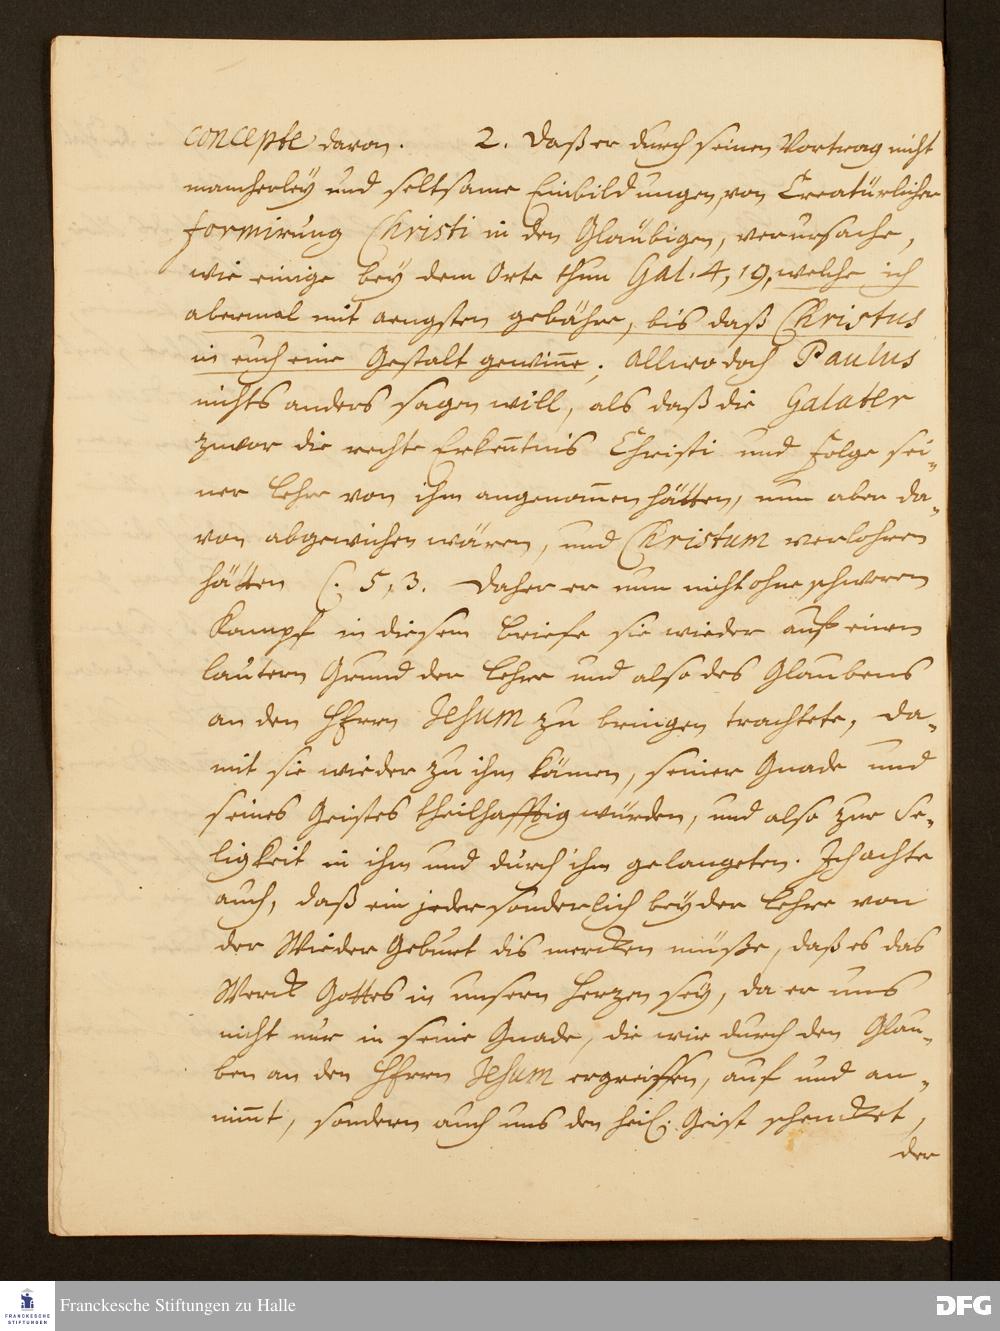 concepte davon. 2. Daß er durch seinen Vortrag nicht
mancherley und seltsame Einbildungen, von Creatürlicher
formirung Christi in den Glaubigen, verursache,
wie einige bey dem Orte thun Gal. 4, 19, welche ich
abermal mit aengsten gebähre, bis daß Christus
in euch eine Gestalt gewinne; Allwo doch Paulus
nichts anders sagen will, als daß die Galater
zwar die rechte Erkentnis Christi und Folge sei-
ner Lehre von ihm angenommen hätten, nun aber da-
von abgewichen wären, und Christum verlohren
hätten C. 5, 3. Daher er nun nicht ohne schweren
Kampf in diesem Briefe sie wieder auf einen
lautern Grund der Lehre und also des Glaubens
an den HErrn Jesum zu bringen trachtete, da-
mit sie wieder zu ihm kämen, seiner Gnade und
seines Geistes theilhafftig würden, und also zur Se-
ligkeit in ihm und durch ihn gelangeten. Ich achte
auch, daß ein jeder sonderlich bey der Lehre von
der Wieder Geburt dis mercken müße, daß es das
Werck Gottes in unsern Herzen sey, da er uns
nicht nur in seine Gnade, die wir durch den Glau-
ben an den HErrn Jesum ergreiffen, auf und an-
nimt, sondern auch uns den heil. Geist schencket,
der
Franckesche Stiftungen zu Halle
FRANCKESCHE
STIFTUNGEN
DFG